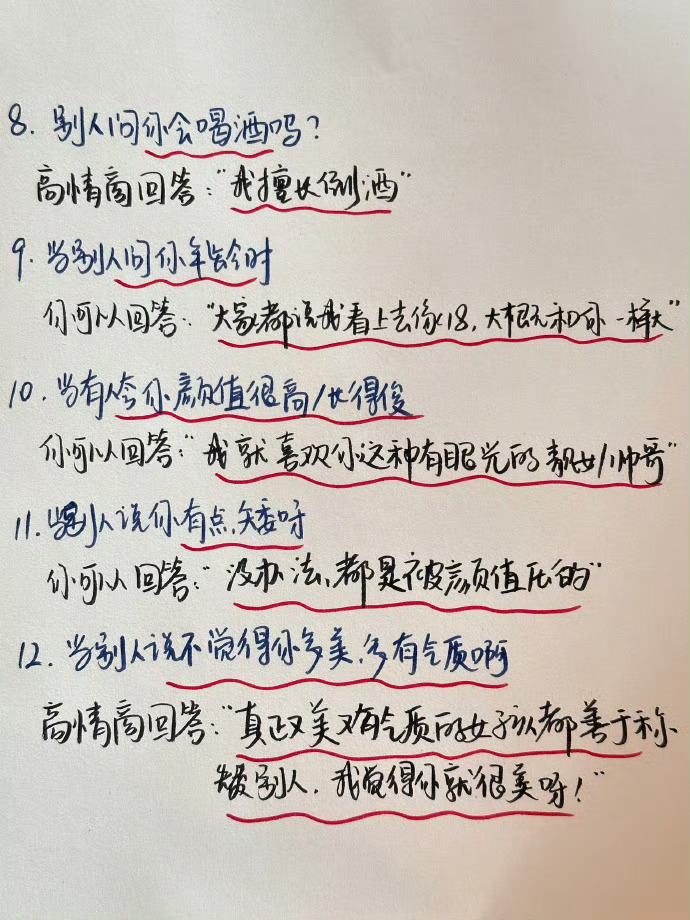 8. 别人问你会喝酒吗？
高情商回答："我擅长倒酒"
9. 当别人问你年龄时
你可以回答："大家都说我看上去像18，大概也和你一样大"
10. 当有人夸你颜值很高/长得俊
你可以回答："我就喜欢你这种有眼光的靓女/帅哥"
11. 当别人说你有点矮呀
你可以回答："没办法，都是被颜值压的"
12. 当别人说不觉得你多美，多有气质啊
高情商回答："真正又美又有气质的女孩从都善于称
赞别人，我觉得你就很美呀！"